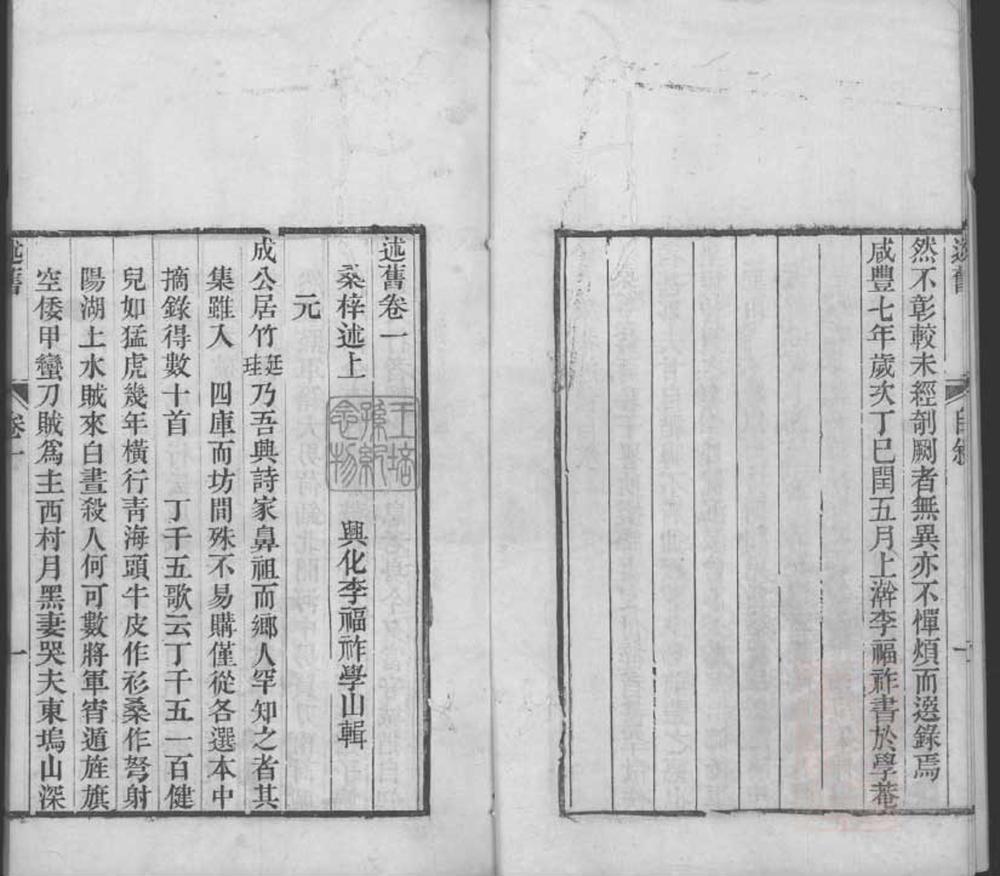 然不彰較未經剞劂者無異亦不憚煩而選錄焉
咸豐七年歲次丁巳閏五月上澣李福祚書於學菴
述舊卷一
桑梓述上
興化李福祚學山輯
元
成公居竹廷珪乃吾興詩家鼻祖而鄉人罕知之者其
集雖入 四庫而坊間殊不易購僅從各選本中
摘錄得數十首 丁千五歌云丁千五一百健
兒如猛虎幾年橫行青海頭牛皮作衫桑作弩射
陽湖上水賊來白晝殺人何可數將軍宵遁旌旗
空倭甲蠻刀賊為主西村月黑妻哭夫東塢山深
述舊
卷一
一